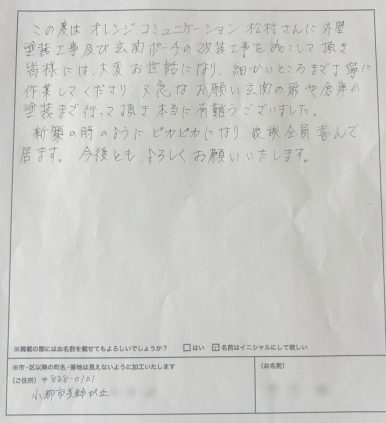 この度は オレンジコミュニケーション 松村さんに 外壁
塗装工事及び玄関ポーチの改装工事を施こして頂き
皆様には、大変お世話になり、細かいところまで丁寧に
作業してくださり、又急なお願い玄関の扉や倉庫の
塗装まで行って頂き本当に有難うございました。
新築の時のようにピカピカになり、家族全員喜んで
居ます。今後とも、よろしくお願いいたします。
※掲載の際にはお名前を載せてもよろしいでしょうか? □はい ☑名前はイニシャルにして欲しい
※市・区以降の町名・番地は見えないように加工いたします
(ご住所) 〒838-0101
小郡市美鈴が丘
(お名前)